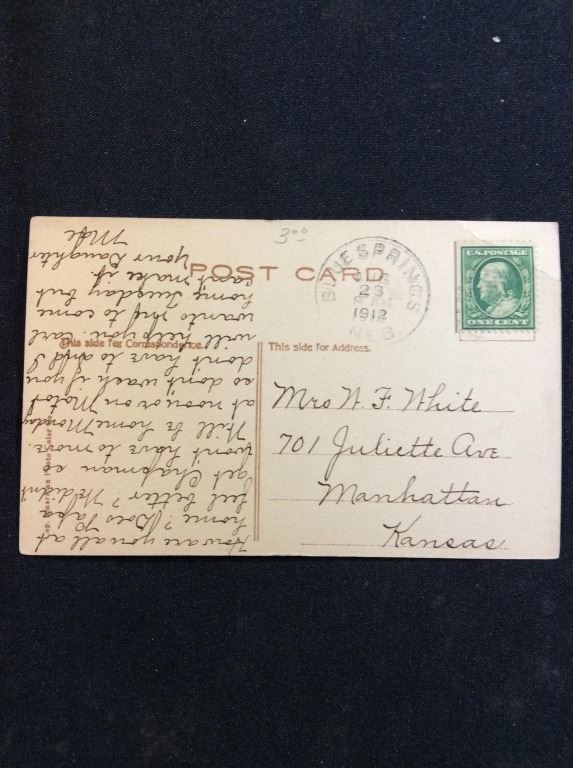 3.00
POST CARD
BLUE SPRINGS
23
1912
NEB.
U.S. POSTAGE
ONE CENT
This side for Correspondence.
This side for Address.
How are you all at
home? Does Papa
feel better? We didn't
get Chapman so
won't have to move.
Will be home Monday
at noon or on Motor
so don't wash if you
don't have to and I
will help you. Earl
wants me to come
home Tuesday but
can't make it.
your Daughter
Mrs W. F. White
701 Juliette Ave
Manhattan
Kansas.